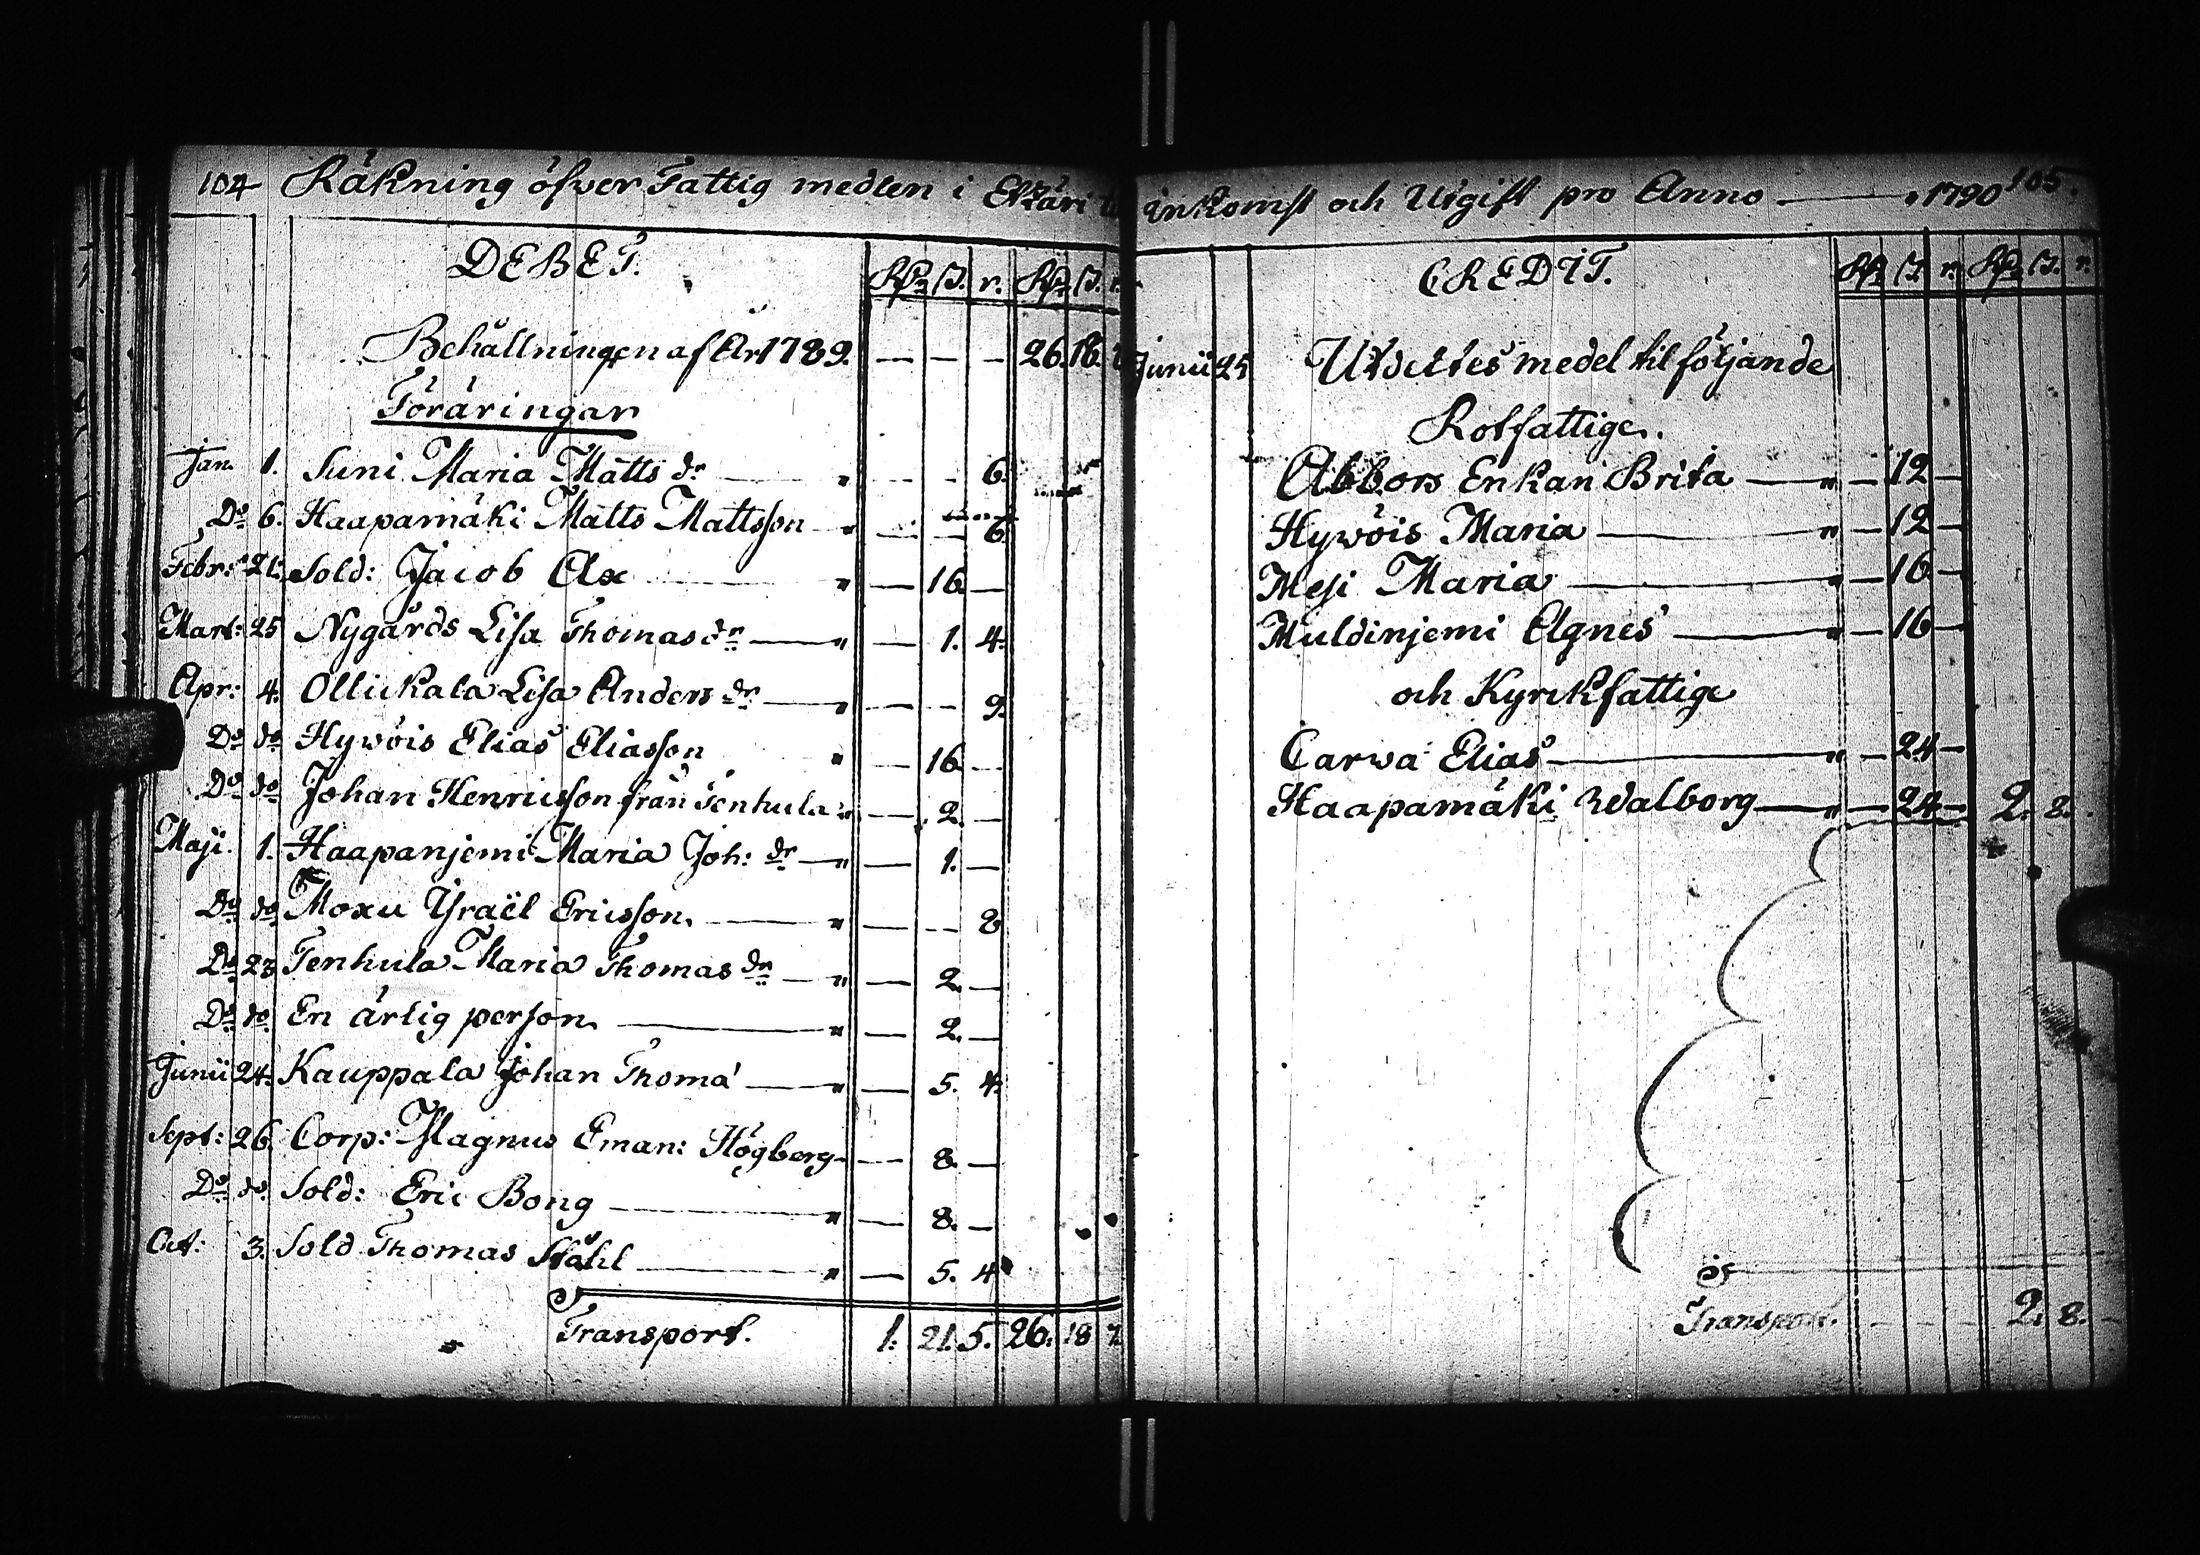 104 Räkning öfver Fattig medlen i Etsäri
DEBET. Rd. ß. r. Rd. ß.
Behållningen af År 1789. — — — 26. 18.
Föräringar
Jan. 1. Suni Maria Matts dr — " - - - 6.
Do 6. Haapamäki Matts Mattsson — " — — 6.
Febr: 21. Sold: Jacob Ax — " — 16. —
Mart: 25 Nygårds Lisa Thomas dr — " — 1. 4.
Apr: 4. Ollickala Lisa Anders dr — " — — 9.
Do do Hywöis Elias Eliasson " — 16. —
Do do Johan Henricsson från Tenhula " — 2. —
Maji 1. Haapanjemi Maria Joh: dr — " — 1. —
Do do Moxu Ysraël Ericsson. — " — — 8
Do 23 Tenhula Maria Thomas dr — " — 2. —
Do do En ärlig person — " — 2. —
Junii 24. Kauppala Johan Thoma — " — 5. 4.
Sept: 26. Corp: Magnus Eman: Högberg — — 8. —
Do do Sold: Eric Bong — " — 8. —
Oct: 3. Sold Thomas Ståhl — " — 5. 4
Transport. 1. 21. 5. 26. 18
inkomst och Utgift pro Anno — 1790 105.
CREDIT. Rd ß. r. Rd ß. r.
Junii 25 Utdeltes medel til följande
Rotfattige.
Abbors Enkan Brita — " — 12 —
Hywöis Maria — " — 12 —
Mesi Maria — " — 16 —
Muldinjemi Agnes — " — 16 —
och Kyrckfattige
Carwa Elias — " — 24 —
Haapamäki Walborg — " — 24 — 2. 8.
Transport. - - - 2. 8. —